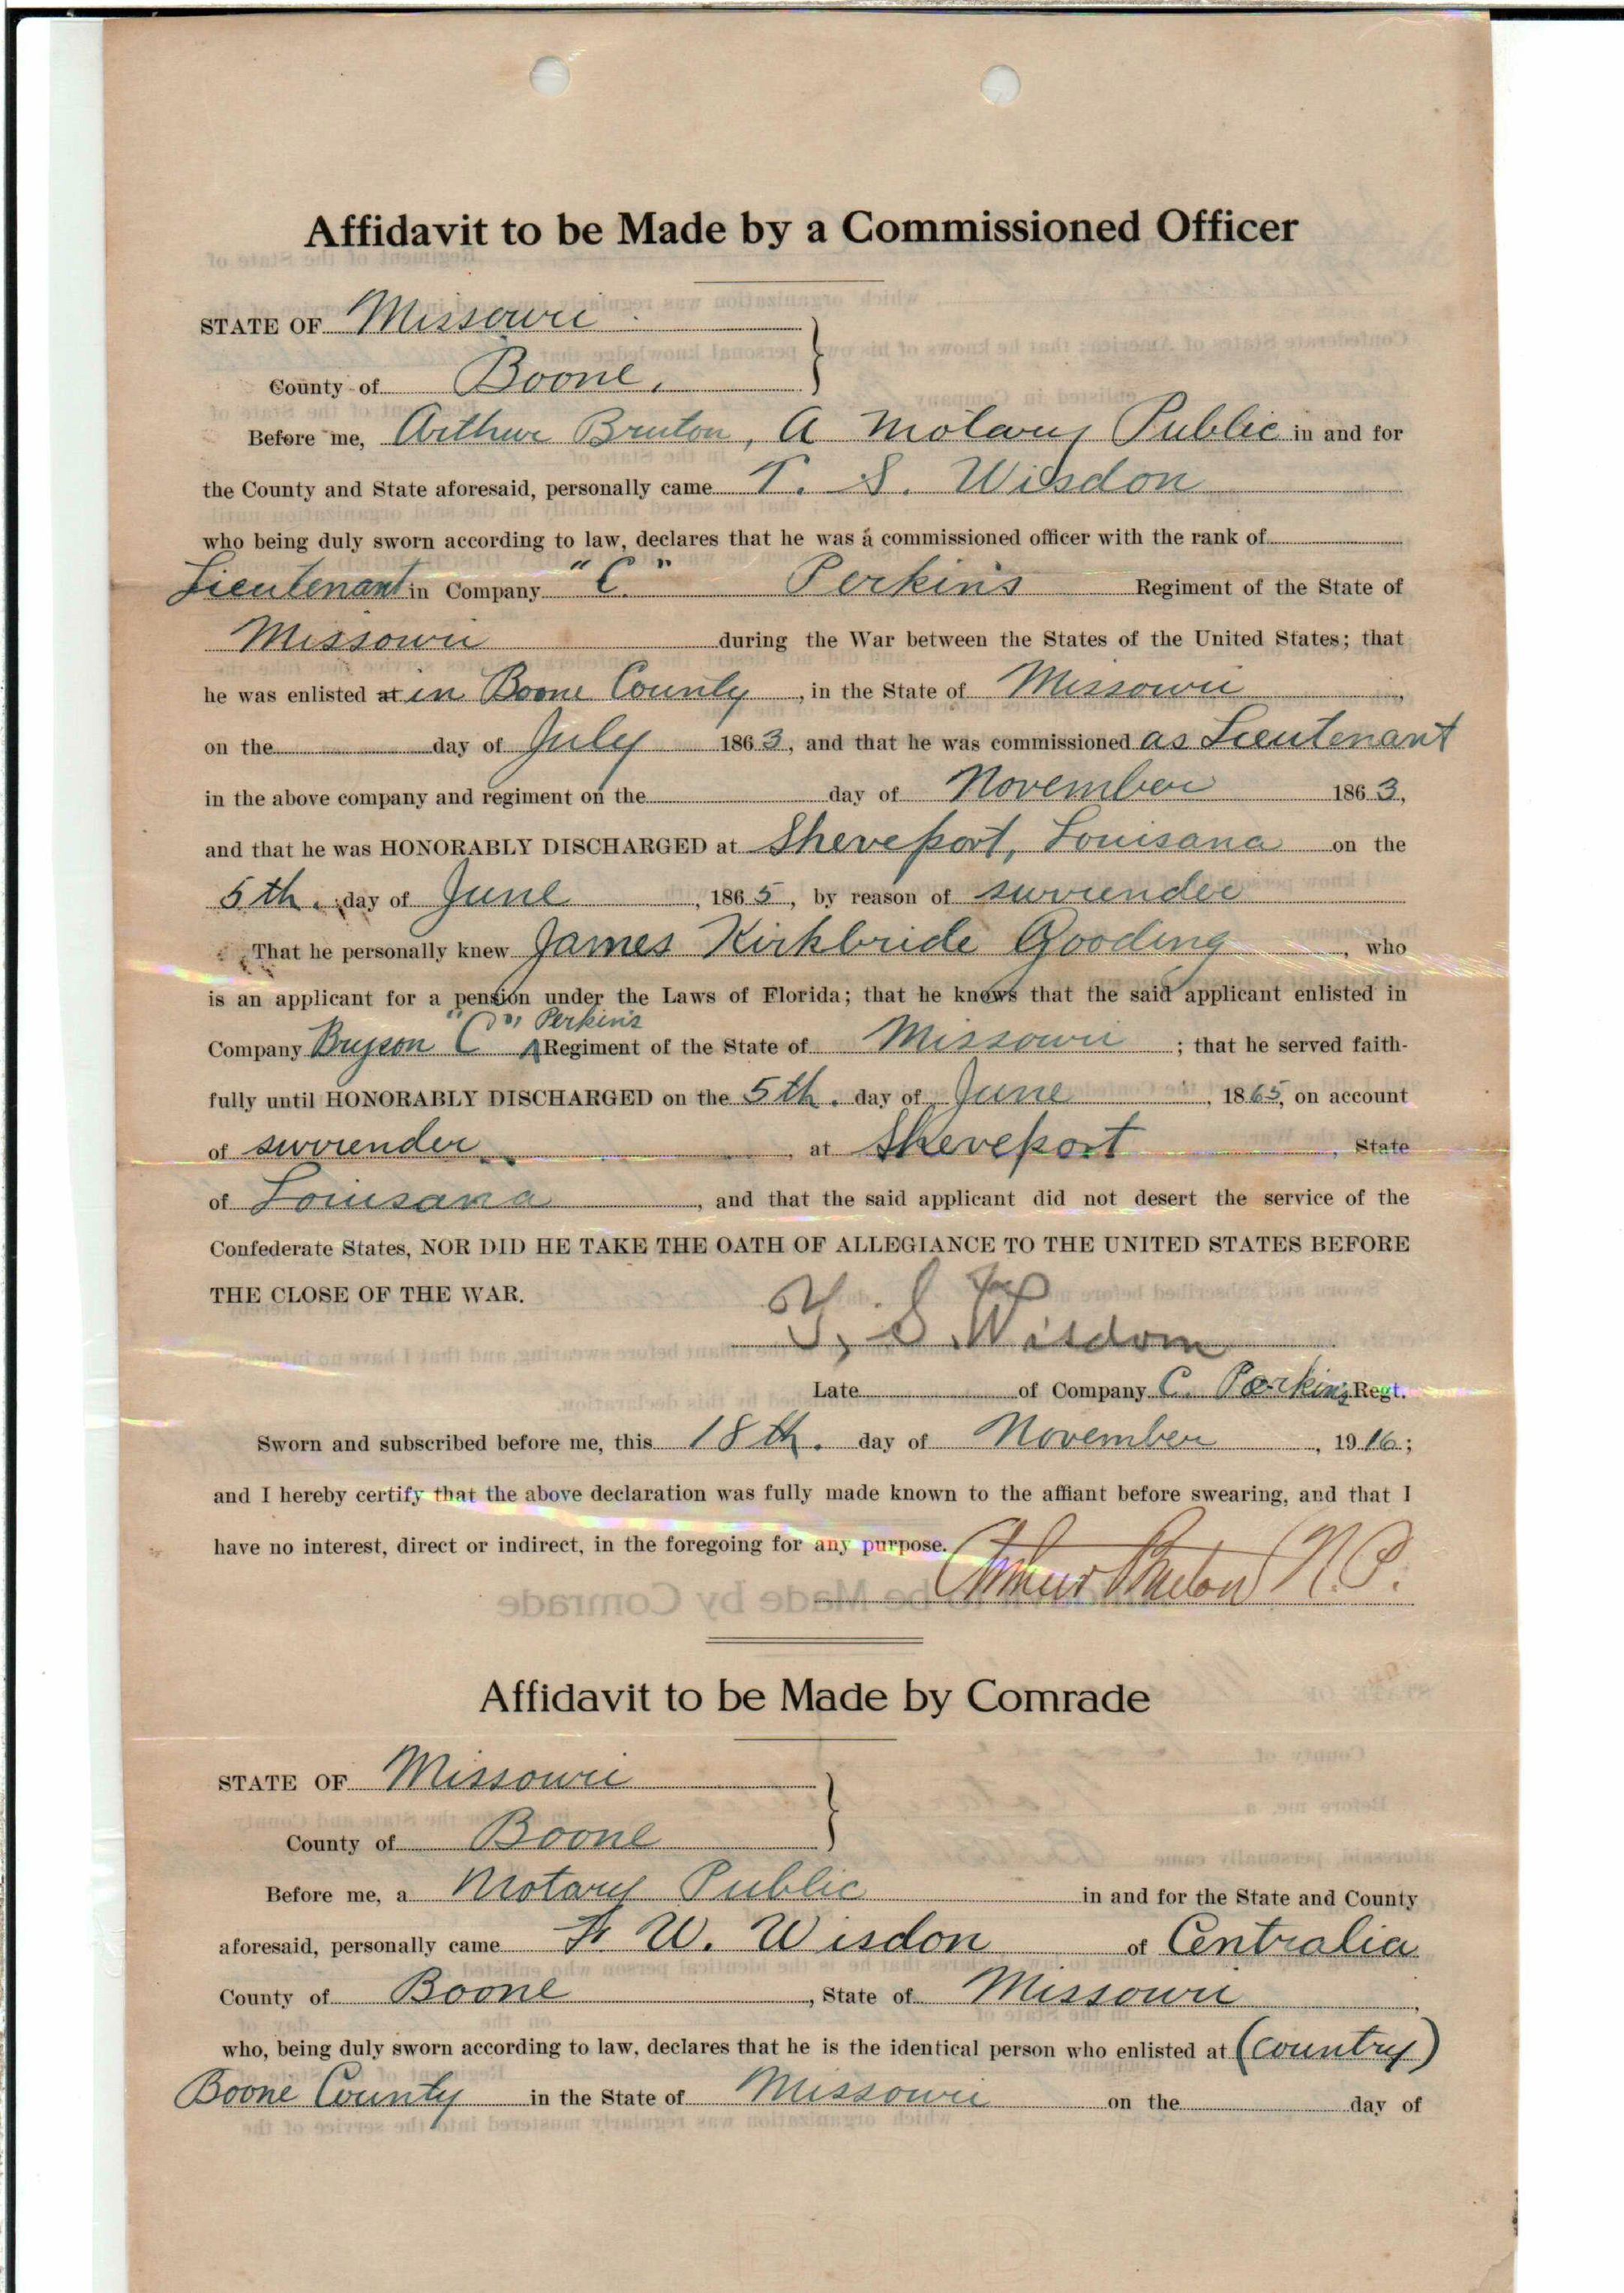 Affidavit to be Made by a Commissioned Officer
STATE OF Missouri
County of Boone,
Before me, Arthur Bruton, A Notary Public in and for
the County and State aforesaid, personally came T. S. Wisdon
who being duly sworn according to law, declares that he was a commissioned officer with the rank of
Lieutenant in Company "C." Perkin's Regiment of the State of
Missouri during the War between the States of the United States; that
he was enlisted at in Boone County, in the State of Missouri,
on the day of July 1863, and that he was commissioned as Lieutenant
in the above company and regiment on the day of November 1863,
and that he was HONORABLY DISCHARGED at Sheveport, Louisana on the
5th. day of June, 1865, by reason of surrender
That he personally knew James Kirkbride Gooding, who
is an applicant for a pension under the Laws of Florida; that he knows that the said applicant enlisted in
Perkin's
Company Bryson "C" Regiment of the State of Missouri; that he served faith-
fully until HONORABLY DISCHARGED on the 5th. day of June, 1865, on account
of surrender, at Sheveport, State
of Louisana, and that the said applicant did not desert the service of the
Confederate States, NOR DID HE TAKE THE OATH OF ALLEGIANCE TO THE UNITED STATES BEFORE
THE CLOSE OF THE WAR.
T. S. Wisdom
Late of Company C. Perkin's Regt.
Sworn and subscribed before me, this 18th. day of November, 1916;
and I hereby certify that the above declaration was fully made known to the affiant before swearing, and that I
have no interest, direct or indirect, in the foregoing for any purpose.
Arthur Bruton N.P.
Affidavit to be Made by Comrade
STATE OF Missouri
County of Boone
Before me, a Notary Public in and for the State and County
aforesaid, personally came W. Wisdon of Centralia
County of Boone, State of Missouri,
who, being duly sworn according to law, declares that he is the identical person who enlisted at (country)
Boone County in the State of Missouri on the day of